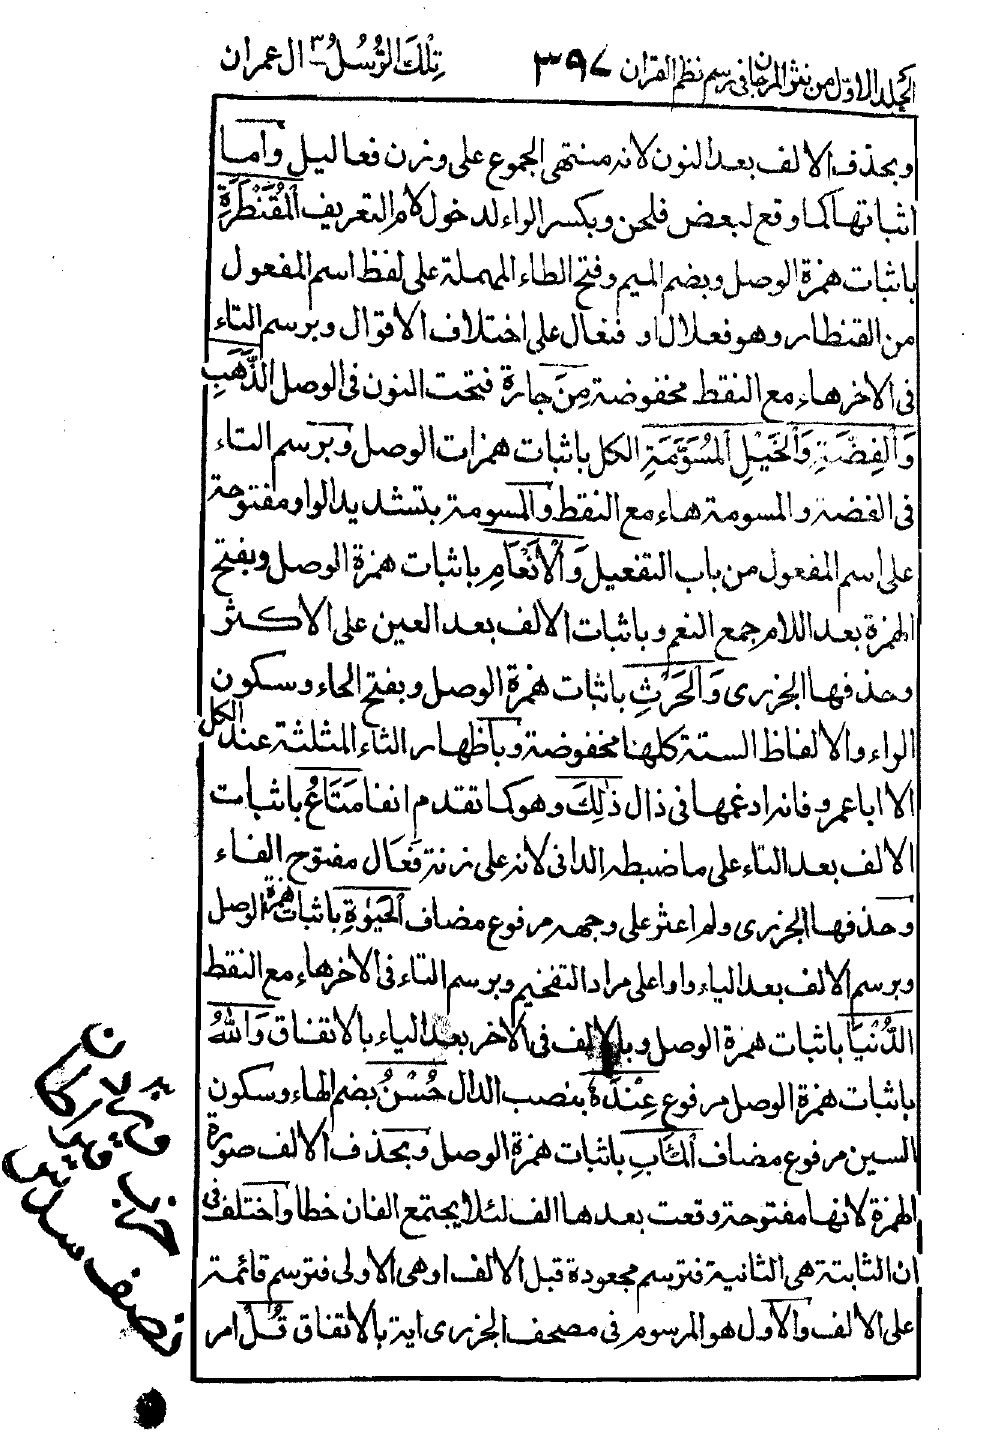 المجلد الاول من نثر المرجان في رسم نظم القران ٣٩٧ تِلْكَ الرُّسُلُ ٣ ال عمران
وبحذف الالف بعد النون لانه منتهى الجموع على وزن فعاليل واما
اثباتها كما وقع لبعض فلحن وبكسر الراء لدخول لام التعريف اَلْمُقَنْطَرَةِ
باثبات همزة الوصل وبضم الميم وفتح الطاء المهملة على لفظ اسم المفعول
من القنطار وهو فعلال او فنعال على اختلاف الاقوال وبرسم التاء
في الاخر هاء مع النقط مخفوضة مِنَ جارة فتحت النون في الوصل الذَّهَبِ
وَالْفِضَّةِ وَالْخَيْلِ الْمُسَوَّمَةِ الكل باثبات همزات الوصل وبرسم التاء
في الفضة والمسومة هاء مع النقط والمسومة بتشديد الواو مفتوحة
على اسم المفعول من باب التفعيل وَالْاَنْعَامِ باثبات همزة الوصل وبفتح
الهمزة بعد اللام جمع النعم وباثبات الالف بعد العين على الاكثر
وحذفها الجزرى وَالْحَرْثِ باثبات همزة الوصل وبفتح الحاء وسكون
الراء والالفاظ الستة كلها مخفوضة وباظهار الثاء المثلثة عند الكل
الا ابا عمرو فانه ادغمها في ذال ذٰلِكَ وهو كما تقدم انفا مَتَاعُ باثبات
الالف بعد التاء على ما ضبطه الداني لانه على زنة فَعَال مفتوح الفاء
وحذفها الجزرى ولم اعثر على وجهه مرفوع مضاف الْحَيٰوةِ باثبات همزة الوصل
وبرسم الالف بعد الياء واوا على مراد التفخيم وبرسم التاء في الاخر هاء مع النقط
الدُّنْيَا باثبات همزة الوصل وبالالف في الاخر بعد الياء بالاتفاق وَاللّٰهُ
باثبات همزة الوصل مرفوع عِنْدَهٗ بنصب الدال حُسْنُ بضم الحاء وسكون
السين مرفوع مضاف الْمَاٰبِ باثبات همزة الوصل وبحذف الالف صورة
الهمزة لانها مفتوحة وقعت بعدها الف لئلا يجتمع الفان خطا واختلف في
ان الثابتة هي الثانية فترسم مجعودة قبل الالف او هي الاولى فترسم قائمة
على الالف والاول هو المرسوم في مصحف الجزرى اية بالاتفاق قُلْ امر
نصف سدس
حزب